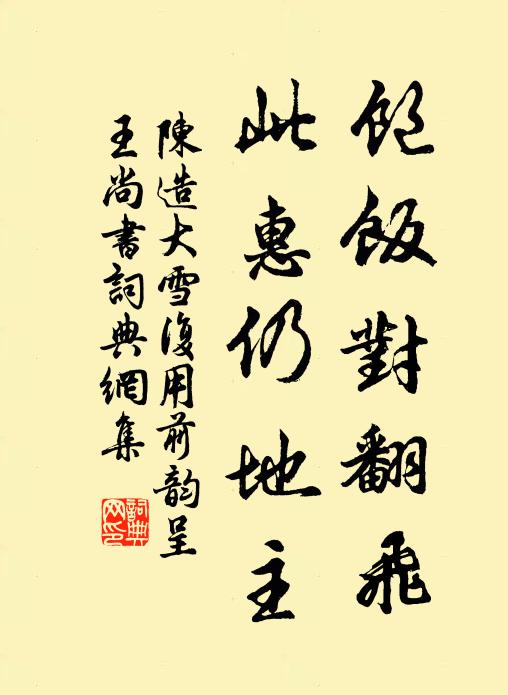 飽飯對翻飛
此惠仍地主
陳造大雪復用前韵呈
王尚書詞典網集
詞典网印